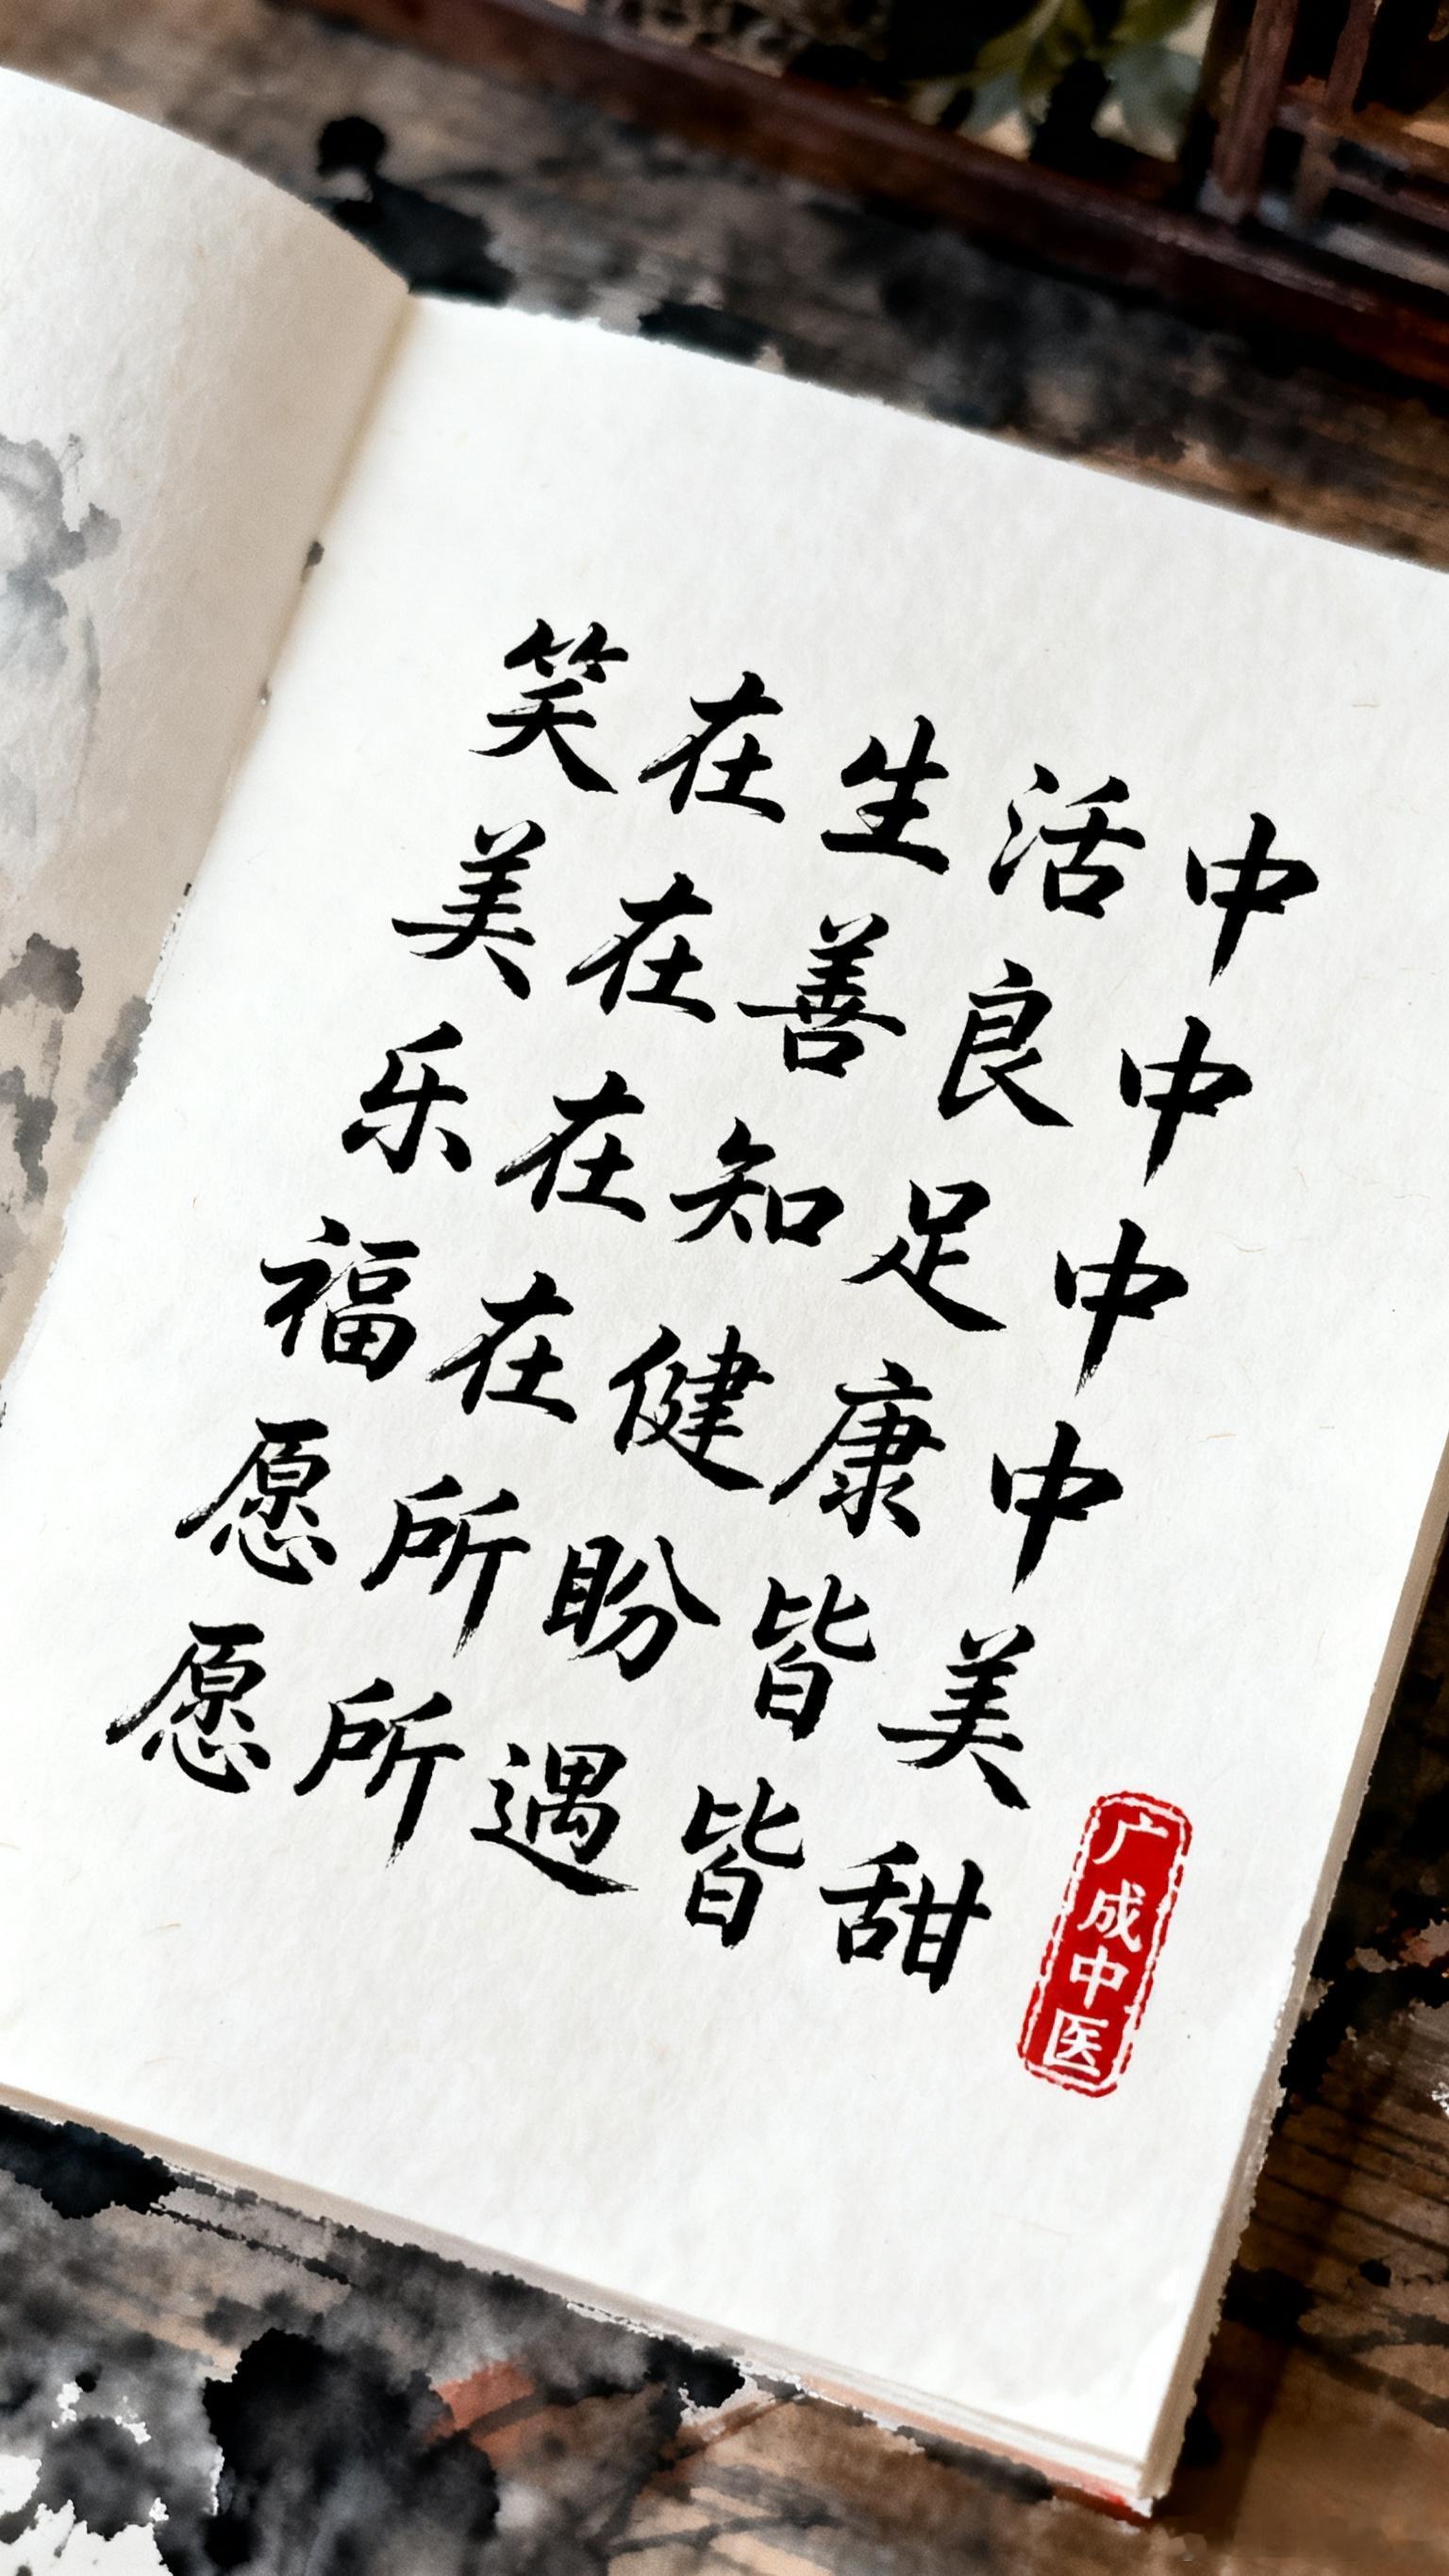 笑在生活中
美在善良中
乐在知足中
福在健康中
愿所盼皆美
愿所遇皆甜
广成中医